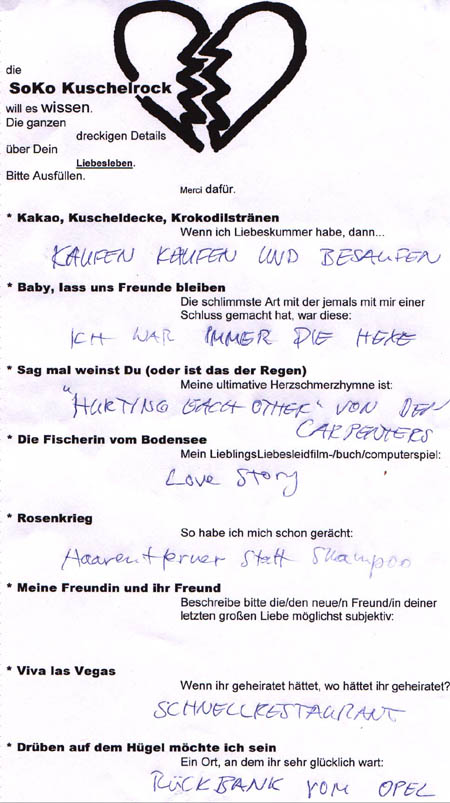 die
SoKo Kuschelrock
will es wissen.
Die ganzen
dreckigen Details
über Dein
Liebesleben.
Bitte Ausfüllen.
Merci dafür.
* Kakao, Kuscheldecke, Krokodilstränen
Wenn ich Liebeskummer habe, dann...
KAUFEN KAUFEN UND BESAUFEN
* Baby, lass uns Freunde bleiben
Die schlimmste Art mit der jemals mit mir einer
Schluss gemacht hat, war diese:
ICH WAR IMMER DIE HEXE
* Sag mal weinst Du (oder ist das der Regen)
Meine ultimative Herzschmerzhymne ist:
"HURTING EACH OTHER" VON DEN
CARPENTERS
* Die Fischerin vom Bodensee
Mein LieblingsLiebesleidfilm-/buch/computerspiel:
Love Story
* Rosenkrieg
So habe ich mich schon gerächt:
Haarentferner statt Shampoo
* Meine Freundin und ihr Freund
Beschreibe bitte die/den neue/n Freund/in deiner
letzten großen Liebe möglichst subjektiv:
* Viva las Vegas
Wenn ihr geheiratet hättet, wo hättet ihr geheiratet?
SCHNELLRESTAURANT
* Drüben auf dem Hügel möchte ich sein
Ein Ort, an dem ihr sehr glücklich wart:
RÜCKBANK VOM OPEL